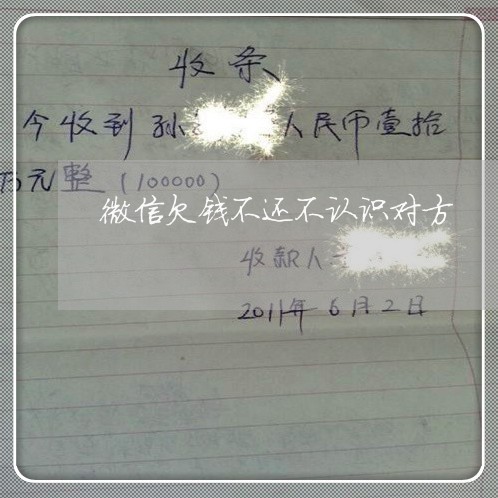 收条
今收到孙人民币壹拾
万元整(100000)
微信欠钱不还不认识对方
收款人
2011年6月2日